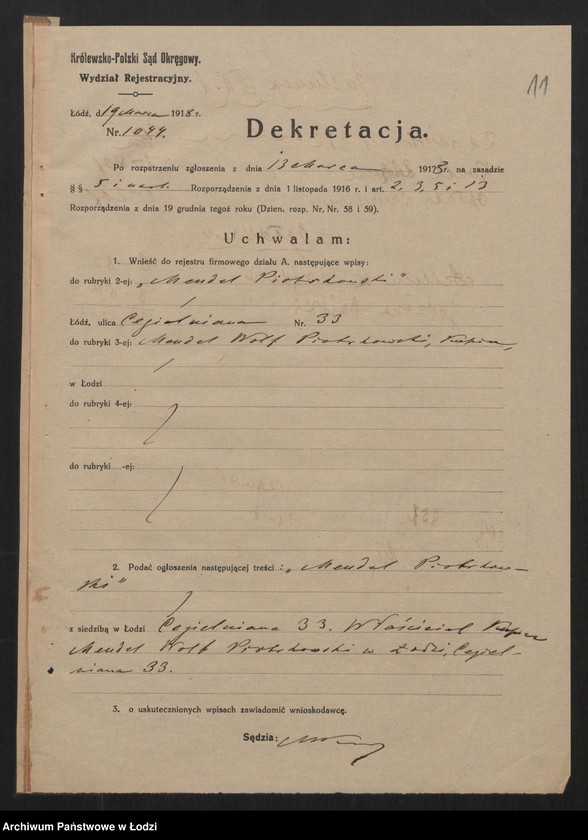 Królewsko-Polski Sąd Okręgowy.
Wydział Rejestracyjny.
11
Łódź, d. 19 Marca 1918 r.
Nr. 1044.
Dekretacja.
Po rozpatrzeniu zgłoszenia z dnia 13 Marca 1918 r. na zasadzie
§ § 5 i nast. Rozporządzenia z dnia 1 listopada 1916 r. i art. 2, 3, 5 i 13
Rozporządzenia z dnia 19 grudnia tegoż roku (Dzien. rozp. Nr. Nr. 58 i 59).
Uchwalam:
1. Wnieść do rejestru firmowego działu A, następujące wpisy:
do rubryki 2-ej: „Mendel Piotrkowski"
Łódź, ulica Cegielniana Nr. 33
do rubryki 3-ej: Mendel Wolf Piotrkowski, kupiec,
w Łodzi
do rubryki 4-ej:
do rubryki -ej:
2. Podać ogłoszenia następującej treści: „Mendel Piotrkow-
ski"
z siedzibą w Łodzi Cegielniana 33. Właściciel kupiec
Mendel Wolf Piotrkowski w Łodzi, Cegiel-
niana 33.
3. o uskutecznionych wpisach zawiadomić wnioskodawcę.
Sędzia:
Archiwum Państwowe w Łodzi